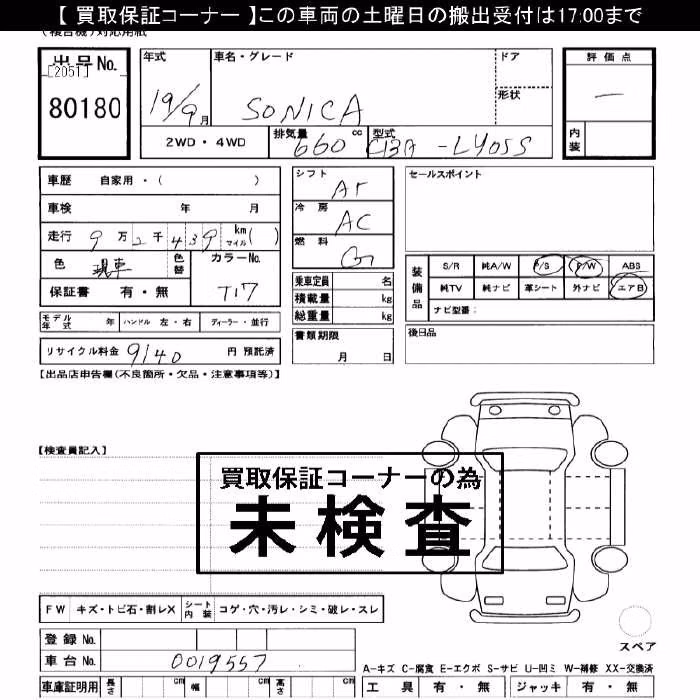 【 買取保証コーナー 】この車両の土曜日の搬出受付は17:00まで
(複合機)対応用紙
出品No. 年式 車名・グレード ドア 評価点
[2051]
80180 19/9月 SONICA 形状 —
2WD・4WD 排気量 660 cc 型式 CBA-L405S 内装
車歴 自家用・( ) シフト AT セールスポイント
車検 年 月 冷房 AC
走行 9万2千439 km マイル ( ) 燃料 G
色 現車 色替 カラーNo. 装備品 S/R 純A/W P/S P/W ABS
保証書 有・無 T17 乗車定員 名 純TV 純ナビ 革シート 外ナビ エアB
積載量 kg ナビ型番:
モデル年式 年 ハンドル 左・右 ディーラー・並行 総重量 kg
リサイクル料金 9140 円 預託済 書類期限 月 日 後日品
【出品店申告欄(不良箇所・欠品・注意事項等)】
【検査員記入】
買取保証コーナーの為
未検査
FW キズ・トビ石・割レX シート内装 コゲ・穴・汚レ・シミ・破レ・スレ
スペア
登録No.
車台No. 0019557
A-キズ C-腐食 E-エクボ S-サビ U-凹ミ W-補修 XX-交換済
車庫証明用 長さ cm 幅 cm 高さ cm 工具 有・無 ジャッキ 有・無